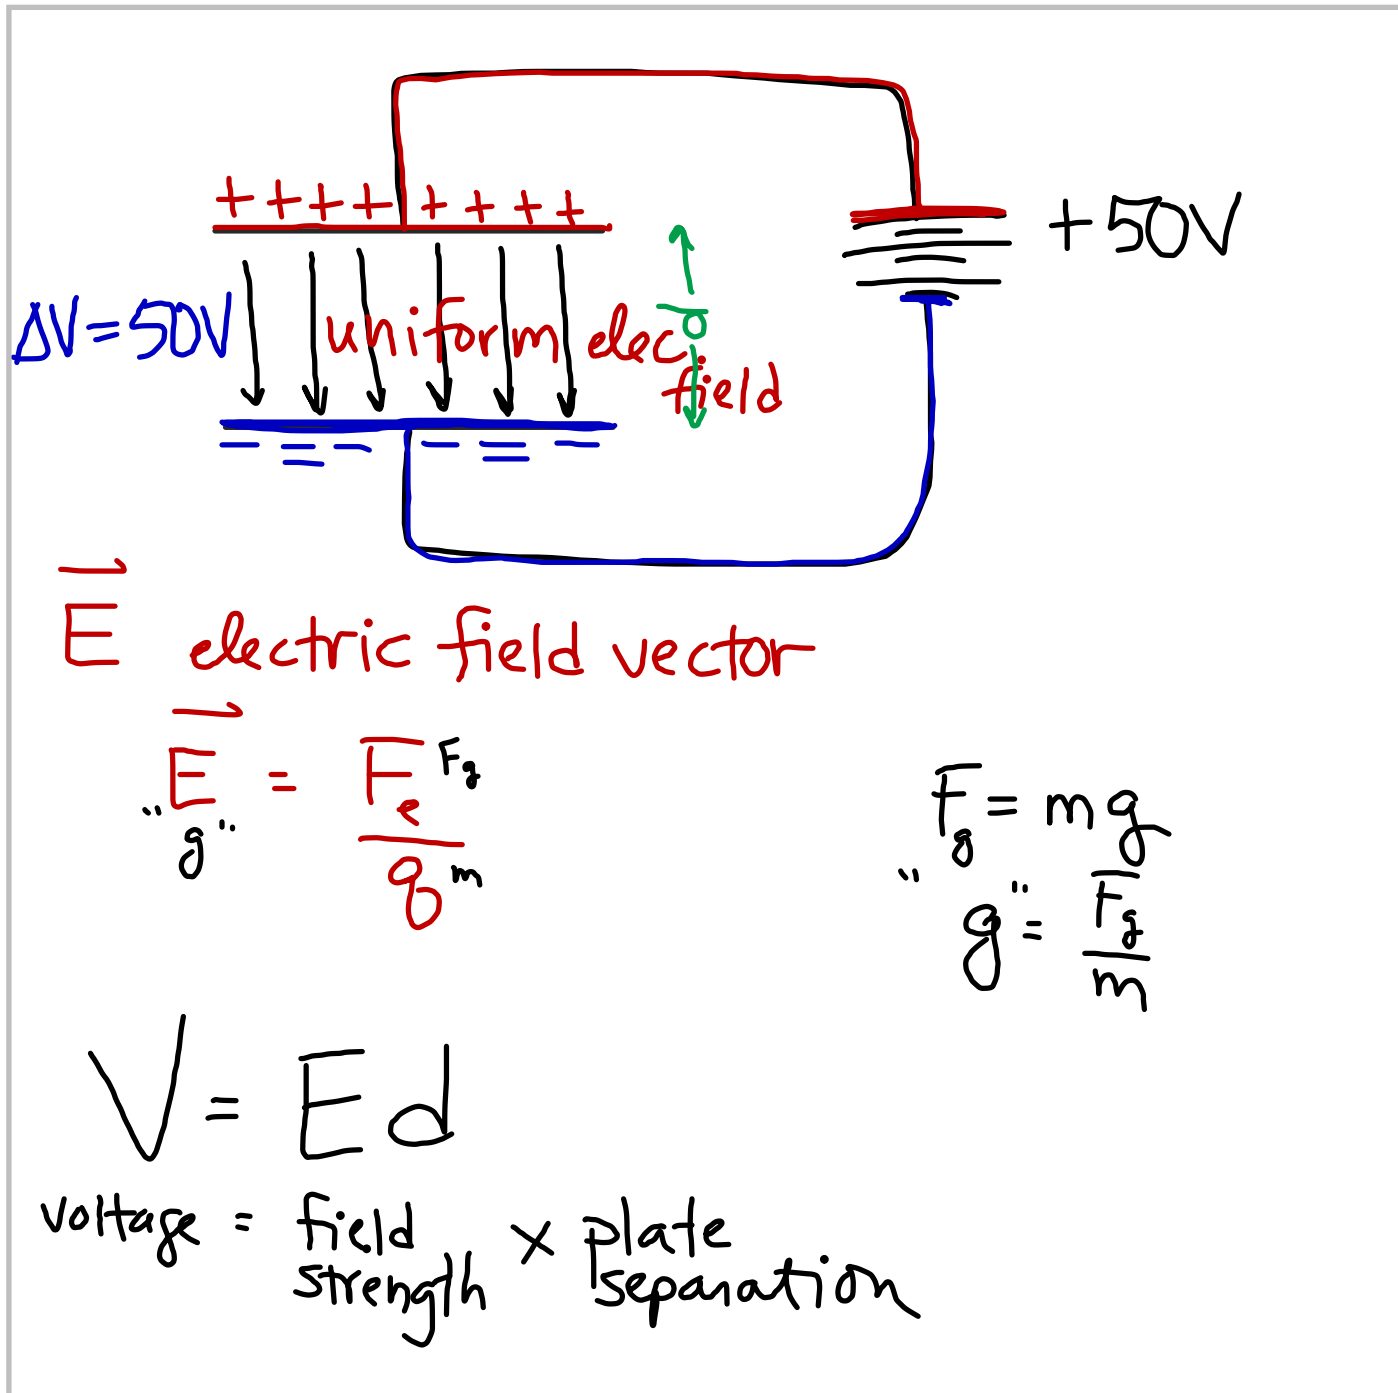 + + + + + + + +
+50V
ΔV=50V
uniform elec.
d
field
E electric field vector
E = Fe/q
Fg
m
"g"
Fg = mg
"g" = Fg/m
V = Ed
voltage = field strength × plate separation